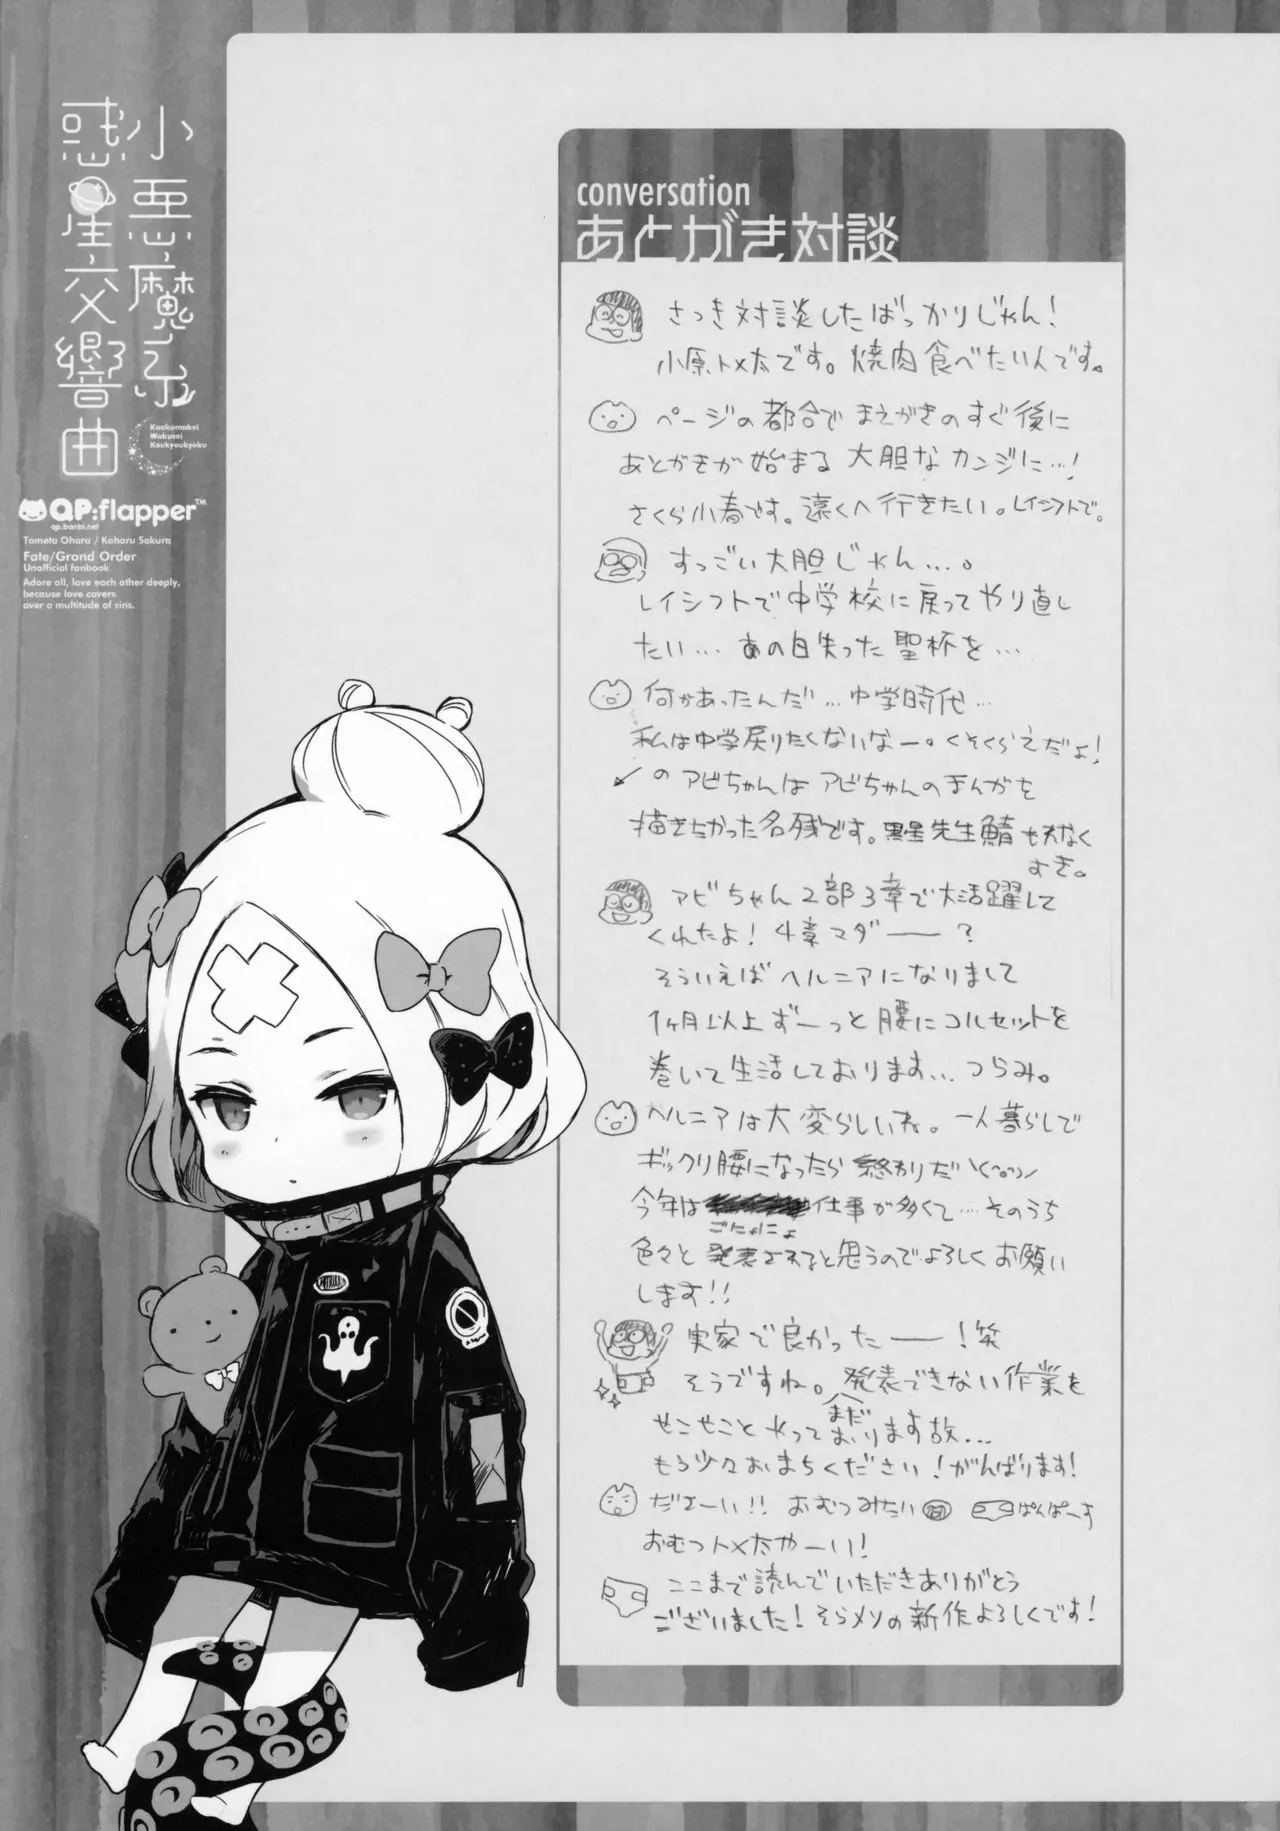 小悪魔系
惑星交響曲
Koakumakei
Wakusei
Koukyoukyoku
QP:flapper™
qp.banbi.net
Tometa Ohara / Koharu Sakura
Fate/Grand Order
Unofficial fanbook
Adore all, love each other deeply,
because love covers
over a multitude of sins.
conversation
あとがき対談
さっき対談したばっかりじゃん！
小原トメ太です。焼肉食べたい人です。
ページの都合でまえがきのすぐ後に
あとがきが始まる大胆なカンジに…！
さくら小春です。遠くへ行きたい。レイシフトで。
すっごい大胆じゃん…。
レイシフトで中学校に戻ってやり直し
たい…あの日失った聖杯を…
何かあったんだ…中学時代…
私は中学戻りたくないなー。くそくらえだよ！
↙のアビちゃんはアビちゃんのまんがを
描きたかった名残です。黒星先生鯖も切なく
すき。
アビちゃん2部3章で大活躍して
くれたよ！4章マダ――？
そういえばヘルニアになりまして
1ヶ月以上ずーっと腰にコルセットを
巻いて生活しております…つらみ。
ヘルニアは大変らしいね。一人暮らしで
ギックリ腰になったら終わりだ
今年は仕事が多くて…そのうち
ごにょにょ
色々と発表されると思うのでよろしくお願い
します!!
実家で良かったー！笑
そうですね。発表できない作業を
せこせことやってまだおります故…
もう少々おまちください！がんばります！
だよーい!! おむつみたい ぱんぱーす
おむつトメ太やーい！
ここまで読んでいただきありがとう
ございました！そらメソの新作よろしくです！